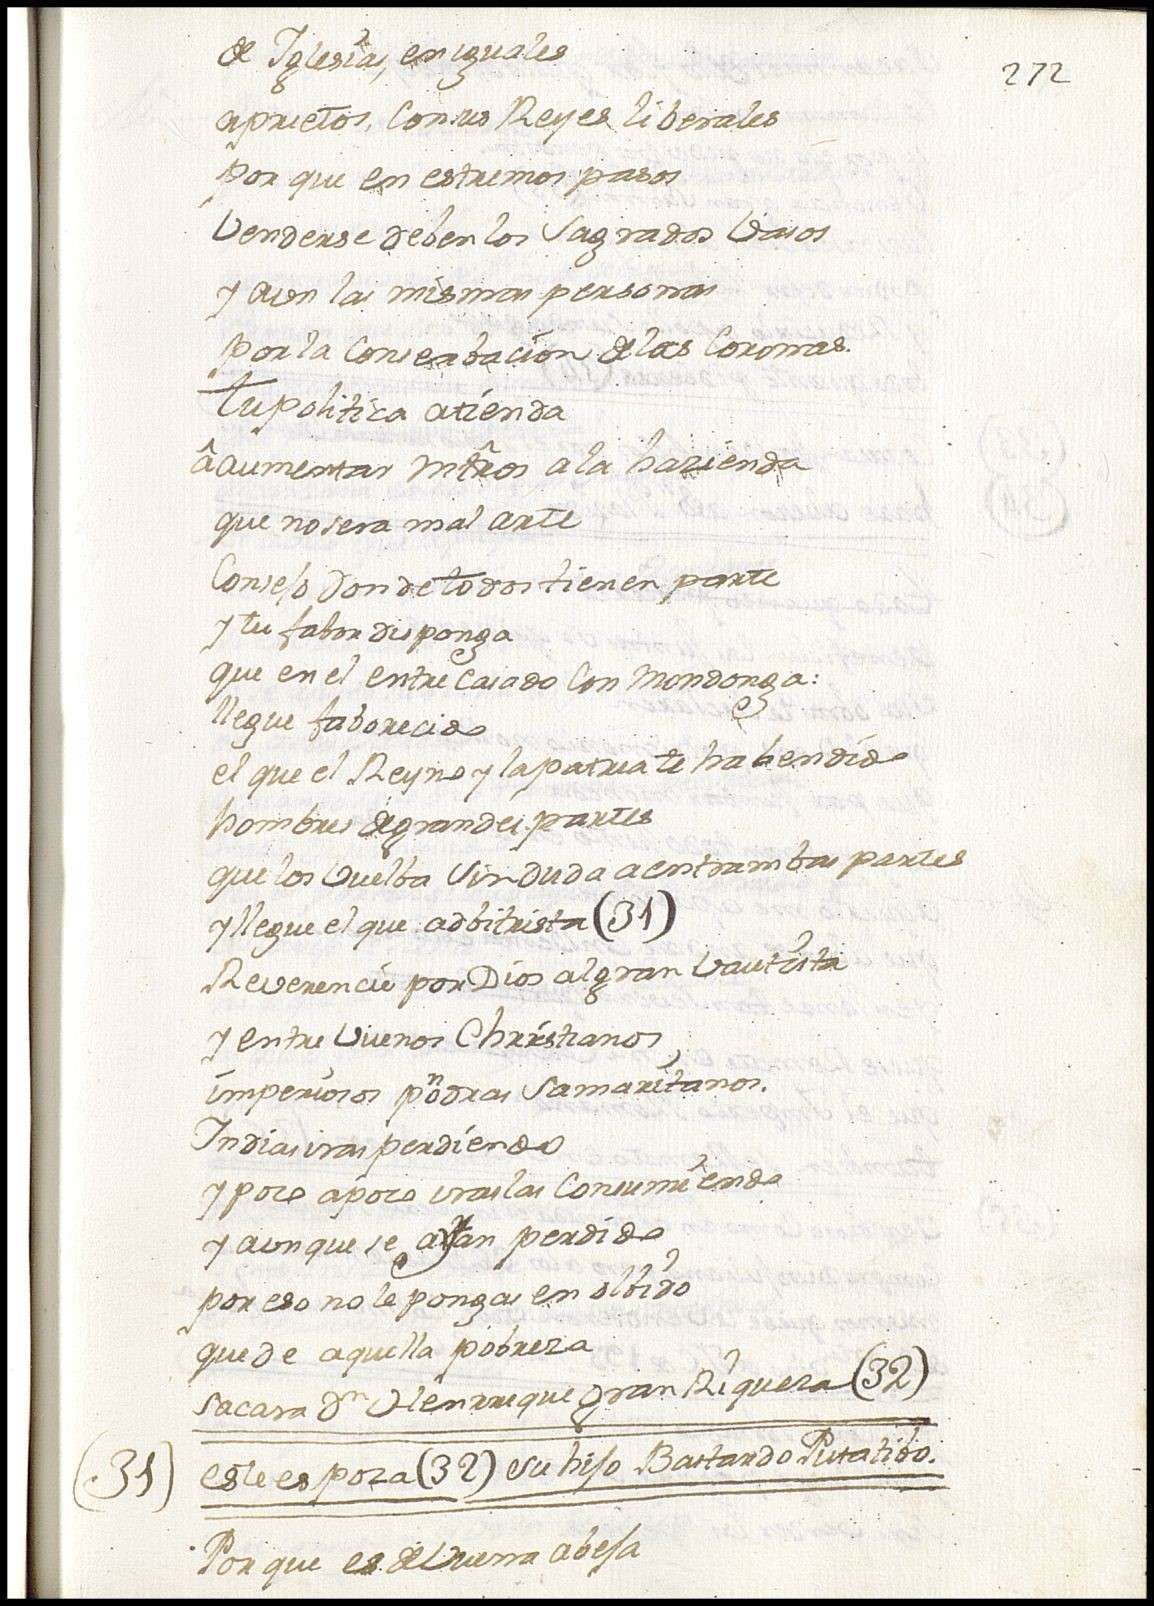 de Iglesias, en iguales
272
aprietos, Con sus Reyes liberales
por que en estremos pasos
Venderse deben los Sagrados Vasos
y aun las mismas personas
por la Conserbacion de las Coronas.
tu politica atienda
â aumentar mtr̃os a la hazienda
que no sera mal arte
Consejo donde todos tienen parte
y tu fabor disponga
que en el entre Casado Con Mondonga:
llegue faborecido
el que el Reyno y la patria te ha bendido
hombres de grandes partes
que los Vuelba Sin duda a entrambas partes
y llegue el que adbitrista (31)
Reverencie por Dios al gran Vautista
y entre Vuenos Christianos
imperiosos pondras Samaritanos.
Indias iras perdiendo
y poco a poco iras las Consumiendo
y aunque se ayan perdido
por eso no le pongas en olbido
que de aquella pobreza
sacara Dn Henrrique gran Riqueza (32)
(31) este es poza (32) su hijo Bastardo Putatibo.
Porque es de Vuena abeja